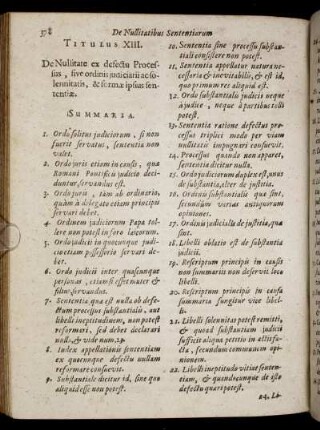 378 De Nullitatibus Sententiarum
TITULUS XIII.
De Nullitate ex defectu Proces-
sus, sive ordinis judiciarii ac so-
lennitatis, & formæ ipsius sen-
tentiæ.
SUMMARIA.
1. Ordo solitus judiciorum, si non
fuerit servatus, sententia non
valet.
2. Ordo juris etiam in causis, quæ
Romani Pontificis judicio deci-
duntur servandus est.
3. Ordo juris, tam ab ordinario,
quàm à delegato etiam principis
servari debet.
4. Ordinem judiciorum Papa tol-
lere non potest in foro laicorum.
5. Ordo judicii in quocunque judi-
cio etiam possessorio servari de-
bet.
6. Ordo judicii inter quascunque
personas, etiam si esset mater &
filius servandus.
7. Sententia quæ est nulla ob defe-
ctum processus substantialis, aut
libelli ineptitudinem, non potest
reformari, sed debet declarari
nulla, & vide num.
8. Iudex appellationis sententiam
ex quocunque defectu nullam
reformare consuevit.
9. Substantiale dicitur id, sine quo
aliquid esse non potest.
10. Sententia sine processu substan-
tiali consistere non potest.
11. Sententia appellatur natura ne-
cessaria & inevitabilis, & est id,
quo primum res aliquid est.
12. Ordo substantialis judicii neque
à judice, neque à partibus tolli
potest.
13. Sententia ratione defectus pro-
cessus triplici modo per viam
nullitatis impugnari consuevit.
14. Processus quando non apparet,
sententia dicitur nulla.
15. Ordo judiciorum duplex est, unus
de substantia, alter de justitia.
16. Ordinis substantialia quæ sint,
secundum varias antiquorum
opiniones.
17. Ordinis judicialia de justitia, quæ
sint.
18. Libelli oblatio est de substantia
judicii.
19. Rescriptum principis in causis
non summariis non deservit loco
libelli.
20. Rescriptum principis in causa
summaria fungitur vice libel-
li.
21. Libelli solennitas potest remitti,
& quoad substantiam judicii
sufficit aliqua petitio in actis fa-
cta, secundum communem opi-
nionem.
22. Libelli ineptitudo vitiat senten-
tiam, & quandocunque de ista
defectu quæri potest.
24. Li-